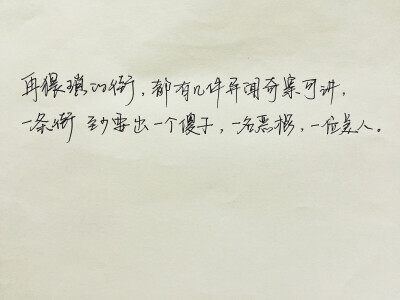 再猥琐的街，都有几件异闻奇案可讲，
一条街 至少要出一个傻子，一名恶棍，一位美人。